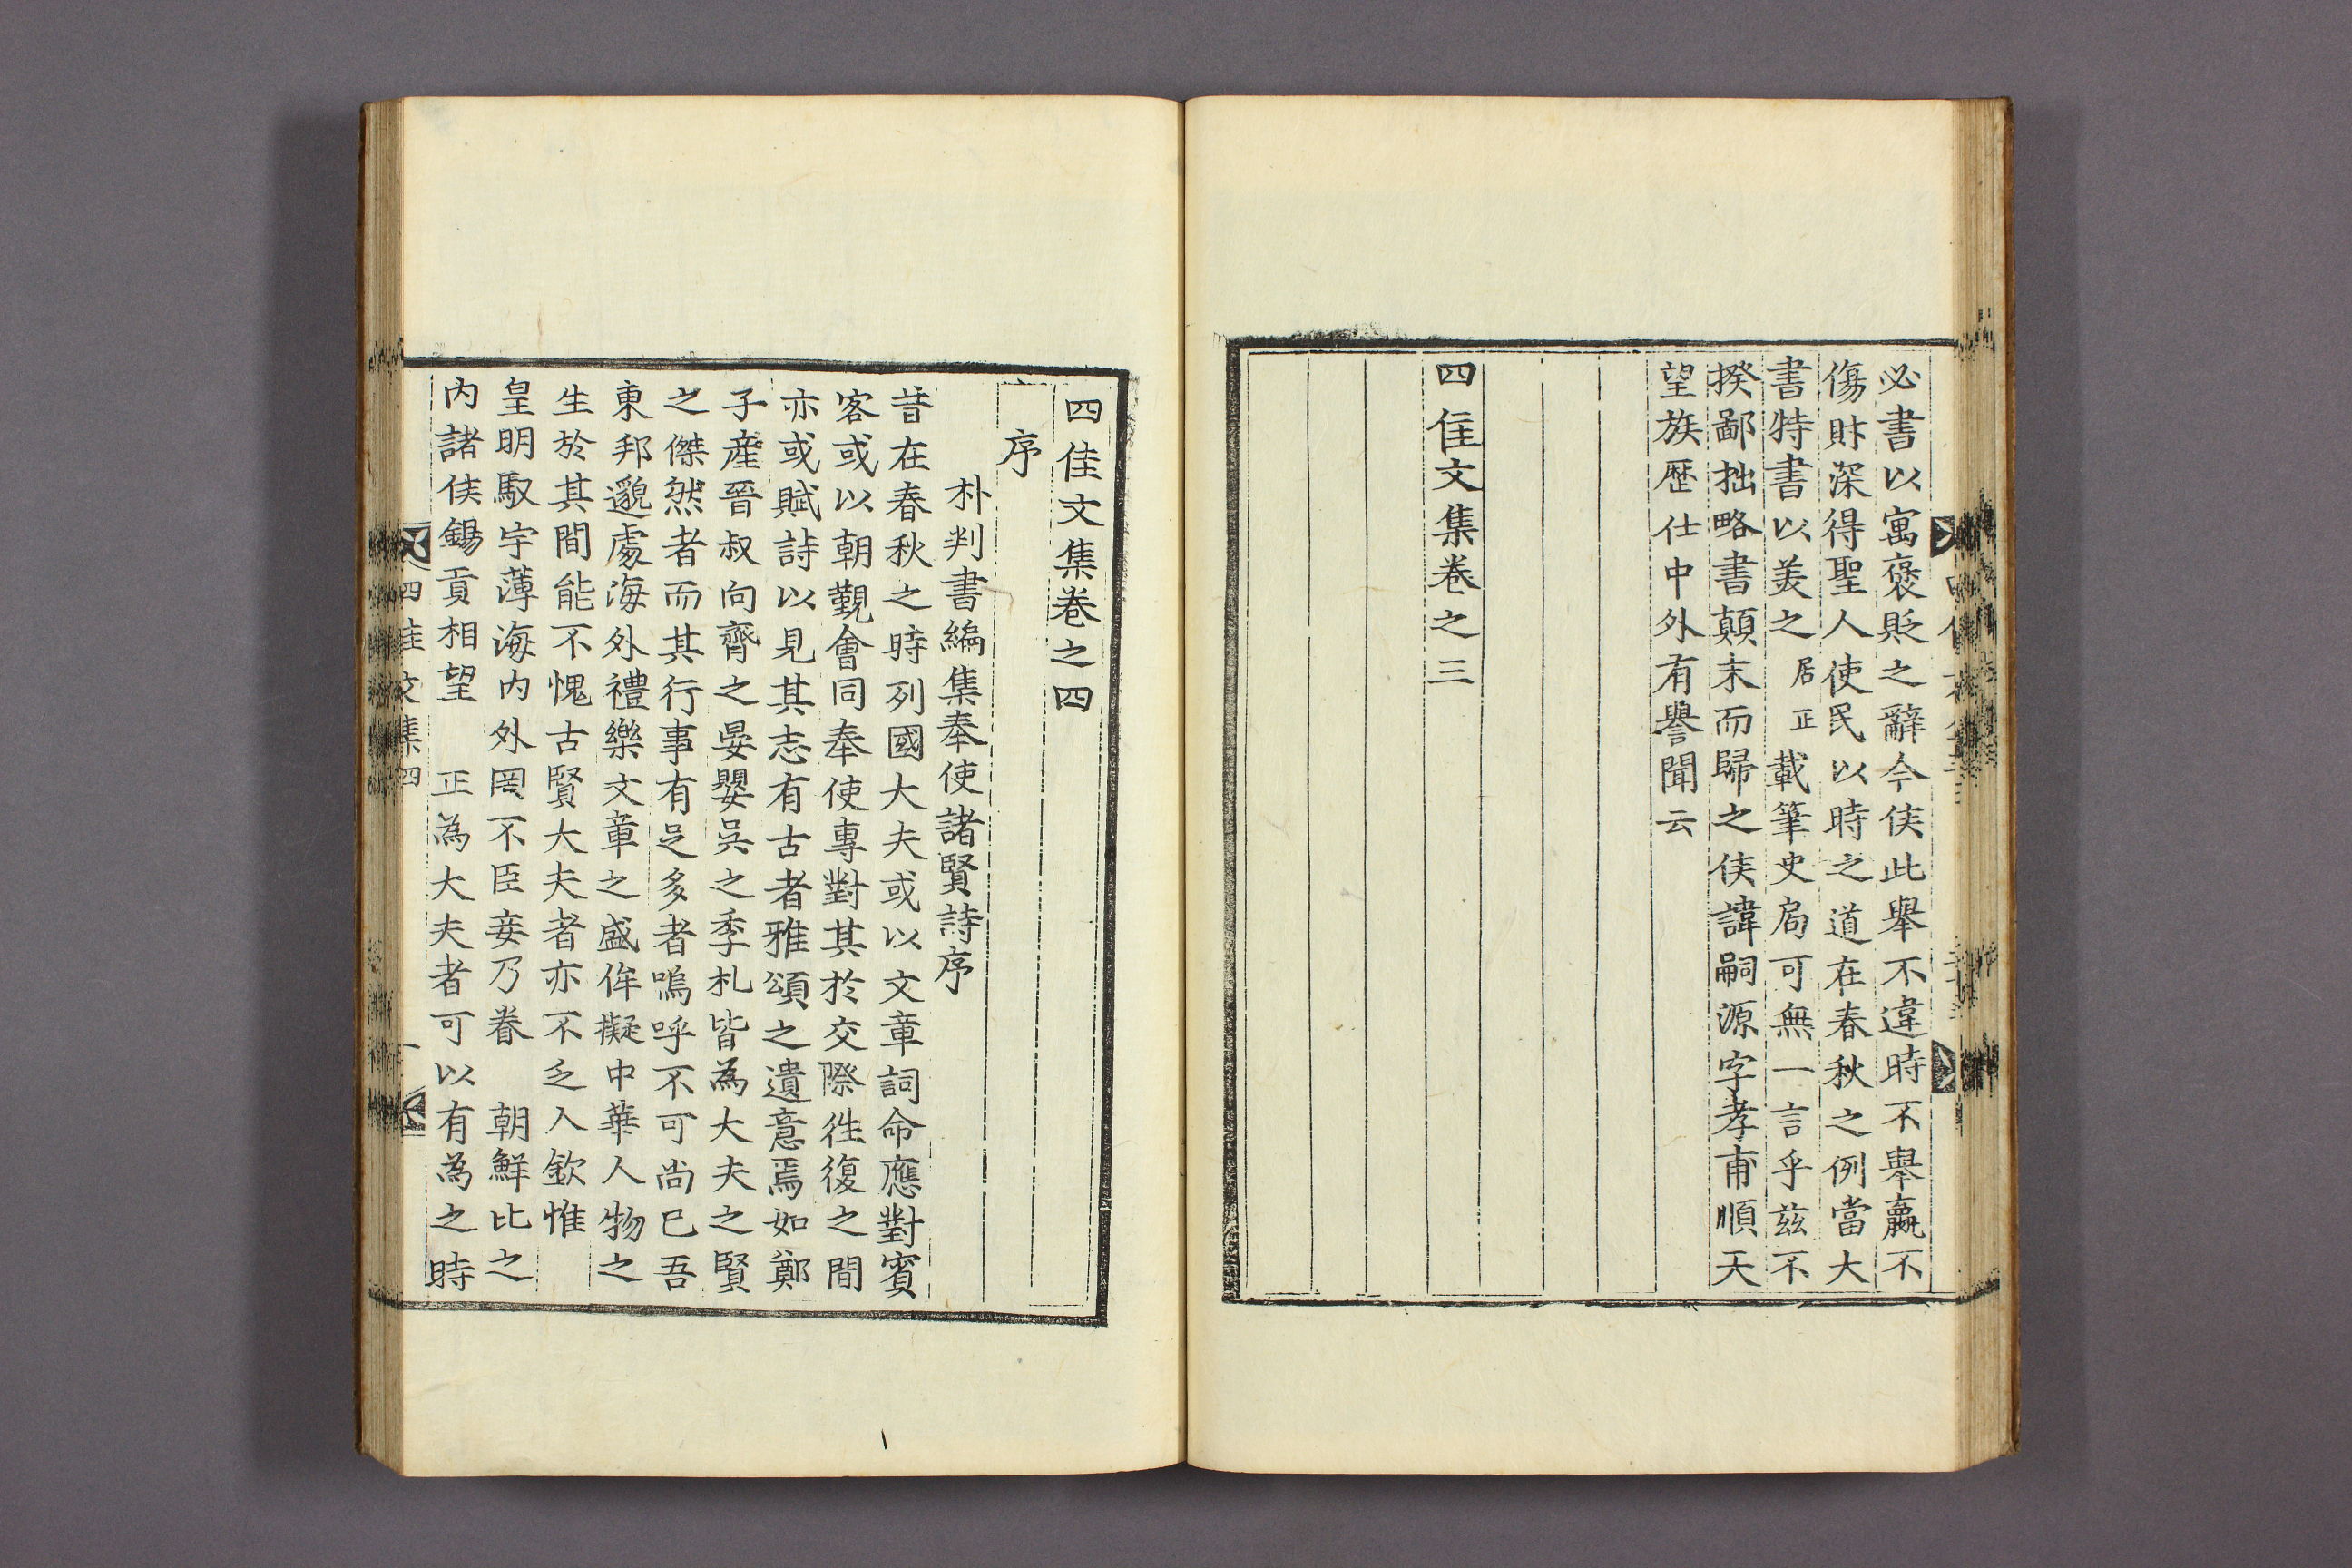 必書以寓褒貶之辭今侯此舉不違時不舉羸不
傷財深得聖人使民以時之道在春秋之例當大
書特書以美之居正載筆史局可無一言乎玆不
揆鄙拙略書顛末而歸之侯諱嗣源字孝甫順天
望族歷仕中外有譽聞云
四佳文集卷之三
四佳文集卷之四
序
朴判書編集奉使諸賢詩序
昔在春秋之時列國大夫或以文章詞命應對賓
客或以朝覲會同奉使專對其於交際徃復之間
亦或賦詩以見其志有古者雅頌之遺意焉如鄭
子產晉叔向齊之晏嬰吳之季札皆為大夫之賢
之傑然者而其行事有足多者嗚呼不可尚已吾
東邦邈處海外禮樂文章之盛侔擬中華人物之
生於其間能不愧古賢大夫者亦不乏人欽惟
皇明馭宇薄海內外罔不臣妾乃眷 朝鮮比之
內諸侯錫貢相望 正為大夫者可以有為之時
四佳文集四 一